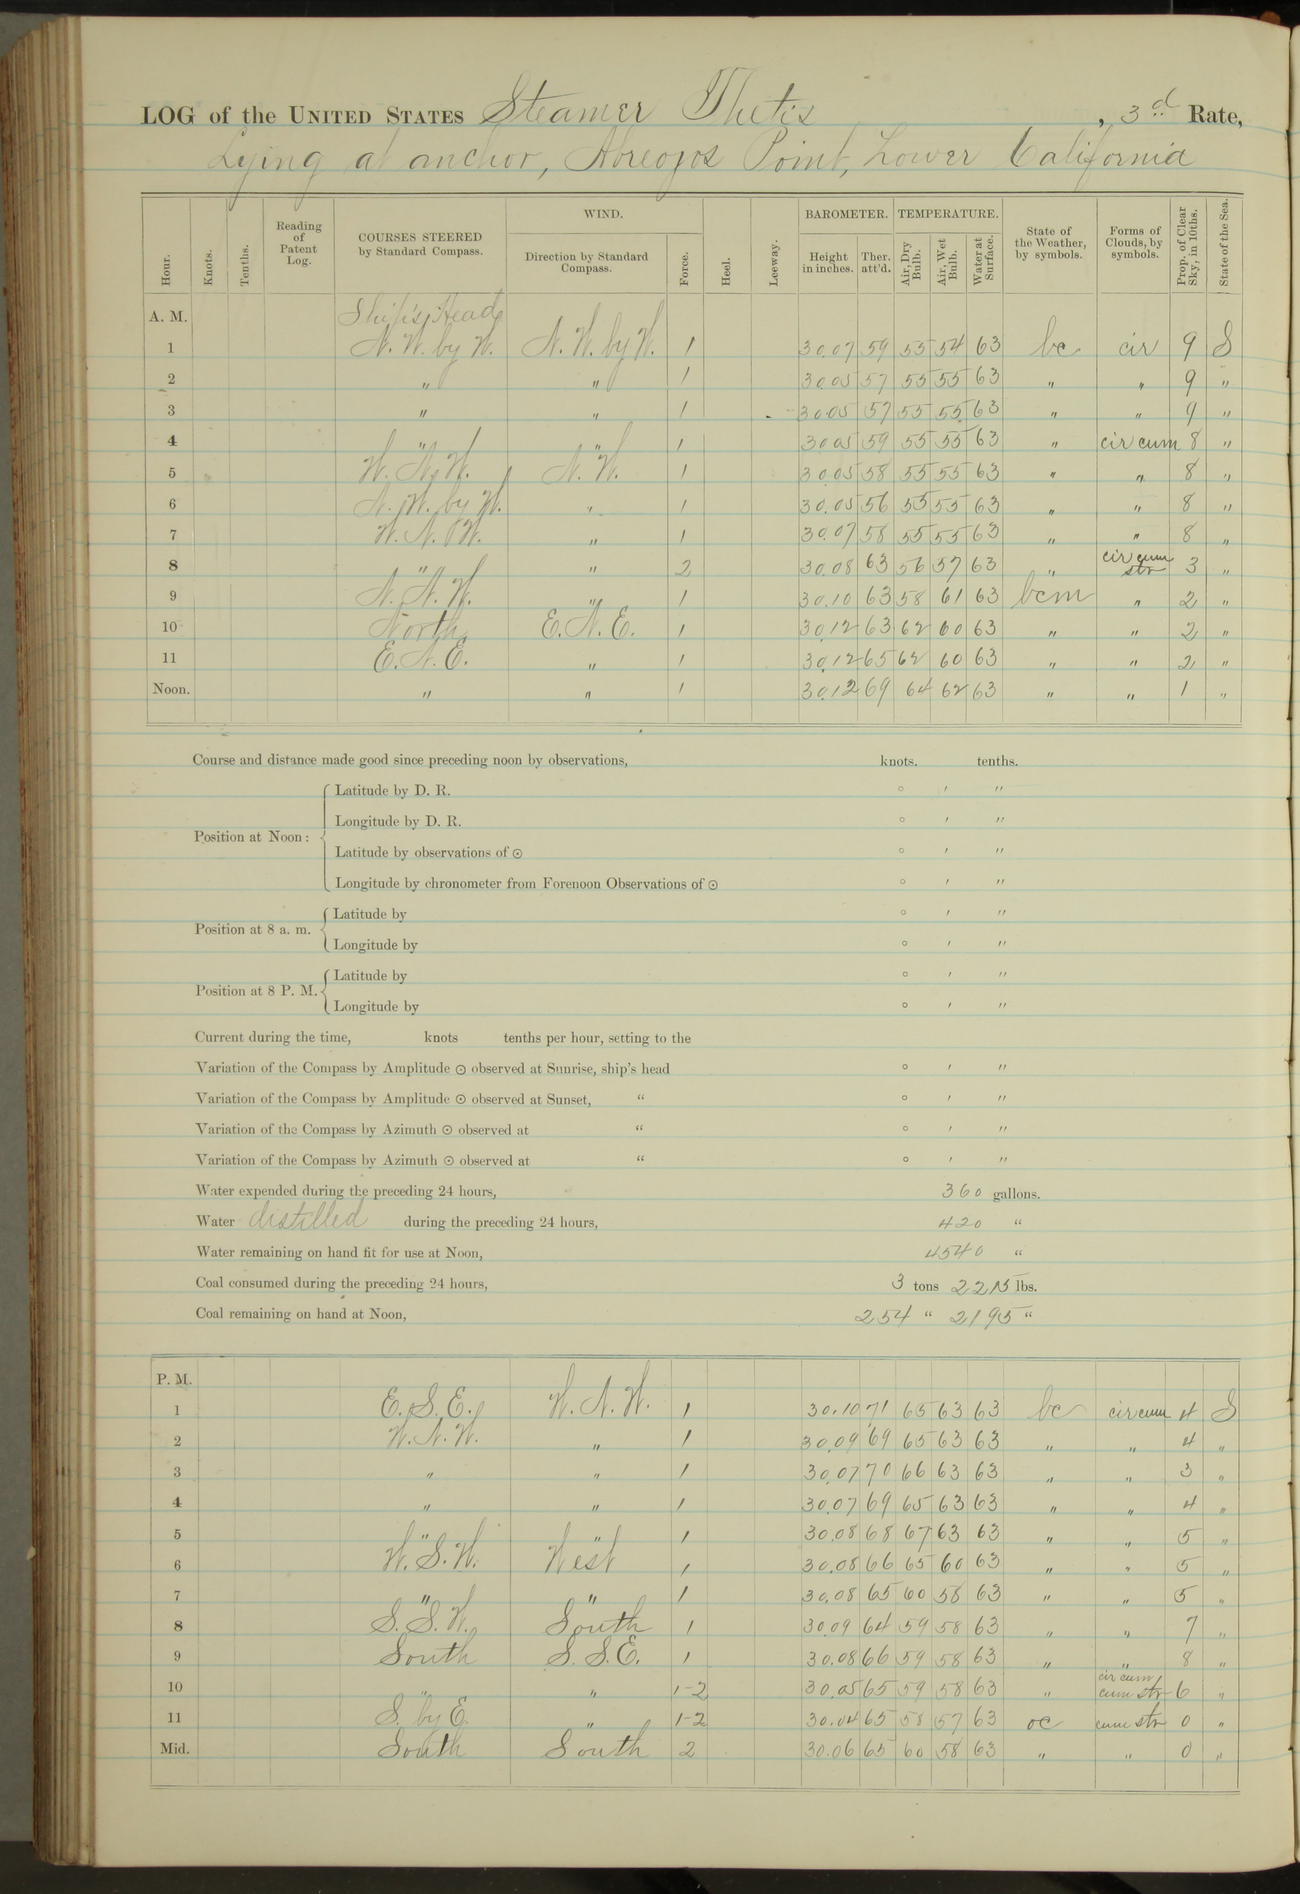 LOG of the UNITED STATES Steamer Thetis, 3d Rate,
Lying at anchor, Abreojos Point, Lower California
Hour. Knots. Tenths. Reading of Patent Log. COURSES STEERED by Standard Compass. WIND. Direction by Standard Compass. Force. Heel. Leeway. BAROMETER. Height in inches. Ther. att'd. TEMPERATURE. Air, Dry Bulb. Air, Wet Bulb. Water at Surface. State of the Weather, by symbols. Forms of Clouds, by symbols. Prop. of Clear Sky, in 10ths. State of the Sea.
A. M. Ship's Head
1 N. W. by W. N. W. by W. 1 30.07 59 55 54 63 bc cir 9 S
2 " " 1 30.05 57 55 55 63 " " 9 "
3 " " 1 30.05 57 55 55 63 " " 9 "
4 " " 1 30.05 59 55 55 63 " cir cum 8 "
5 W. N. W. N. W. 1 30.05 58 55 55 63 " " 8 "
6 N. W. by W. " 1 30.05 56 55 55 63 " " 8 "
7 W. N. W. " 1 30.07 58 55 55 63 " " 8 "
8 " " 2 30.08 63 56 57 63 " cir cum str 3 "
9 N. N. W. " 1 30.10 63 58 61 63 bcm " 2 "
10 North E. N. E. 1 30.12 63 62 60 63 " " 2 "
11 E. N. E. " 1 30.12 65 62 60 63 " " 2 "
Noon. " " 1 30.12 69 64 62 63 " " 1 "
Course and distance made good since preceding noon by observations, knots. tenths.
Position at Noon: Latitude by D. R. ° ′ ″
Longitude by D. R. ° ′ ″
Latitude by observations of ⊙ ° ′ ″
Longitude by chronometer from Forenoon Observations of ⊙ ° ′ ″
Position at 8 a. m. Latitude by ° ′ ″
Longitude by ° ′ ″
Position at 8 P. M. Latitude by ° ′ ″
Longitude by ° ′ ″
Current during the time, knots tenths per hour, setting to the
Variation of the Compass by Amplitude ⊙ observed at Sunrise, ship's head ° ′ ″
Variation of the Compass by Amplitude ⊙ observed at Sunset, " ° ′ ″
Variation of the Compass by Azimuth ⊙ observed at " ° ′ ″
Variation of the Compass by Azimuth ⊙ observed at " ° ′ ″
Water expended during the preceding 24 hours, 360 gallons.
Water distilled during the preceding 24 hours, 420 "
Water remaining on hand fit for use at Noon, 4540 "
Coal consumed during the preceding 24 hours, 3 tons 2215 lbs.
Coal remaining on hand at Noon, 254 " 2195 "
P. M.
1 E. S. E. W. N. W. 1 30.10 71 65 63 63 bc cir cum 4 S
2 W. N. W. " 1 30.09 69 65 63 63 " " 4 "
3 " " 1 30.07 70 66 63 63 " " 3 "
4 " " 1 30.07 69 65 63 63 " " 4 "
5 " " 1 30.08 68 67 63 63 " " 5 "
6 W. S. W. West 1 30.08 66 65 60 63 " " 5 "
7 " " 1 30.08 65 60 58 63 " " 5 "
8 S. S. W. South 1 30.09 64 59 58 63 " " 7 "
9 South S. S. E. 1 30.08 66 59 58 63 " " 8 "
10 " " 1-2 30.05 65 59 58 63 " cir cum cum str 6 "
11 S. by E. " 1-2 30.04 65 58 57 63 oc cum str 0 "
Mid. South South 2 30.06 65 60 58 63 " " 0 "